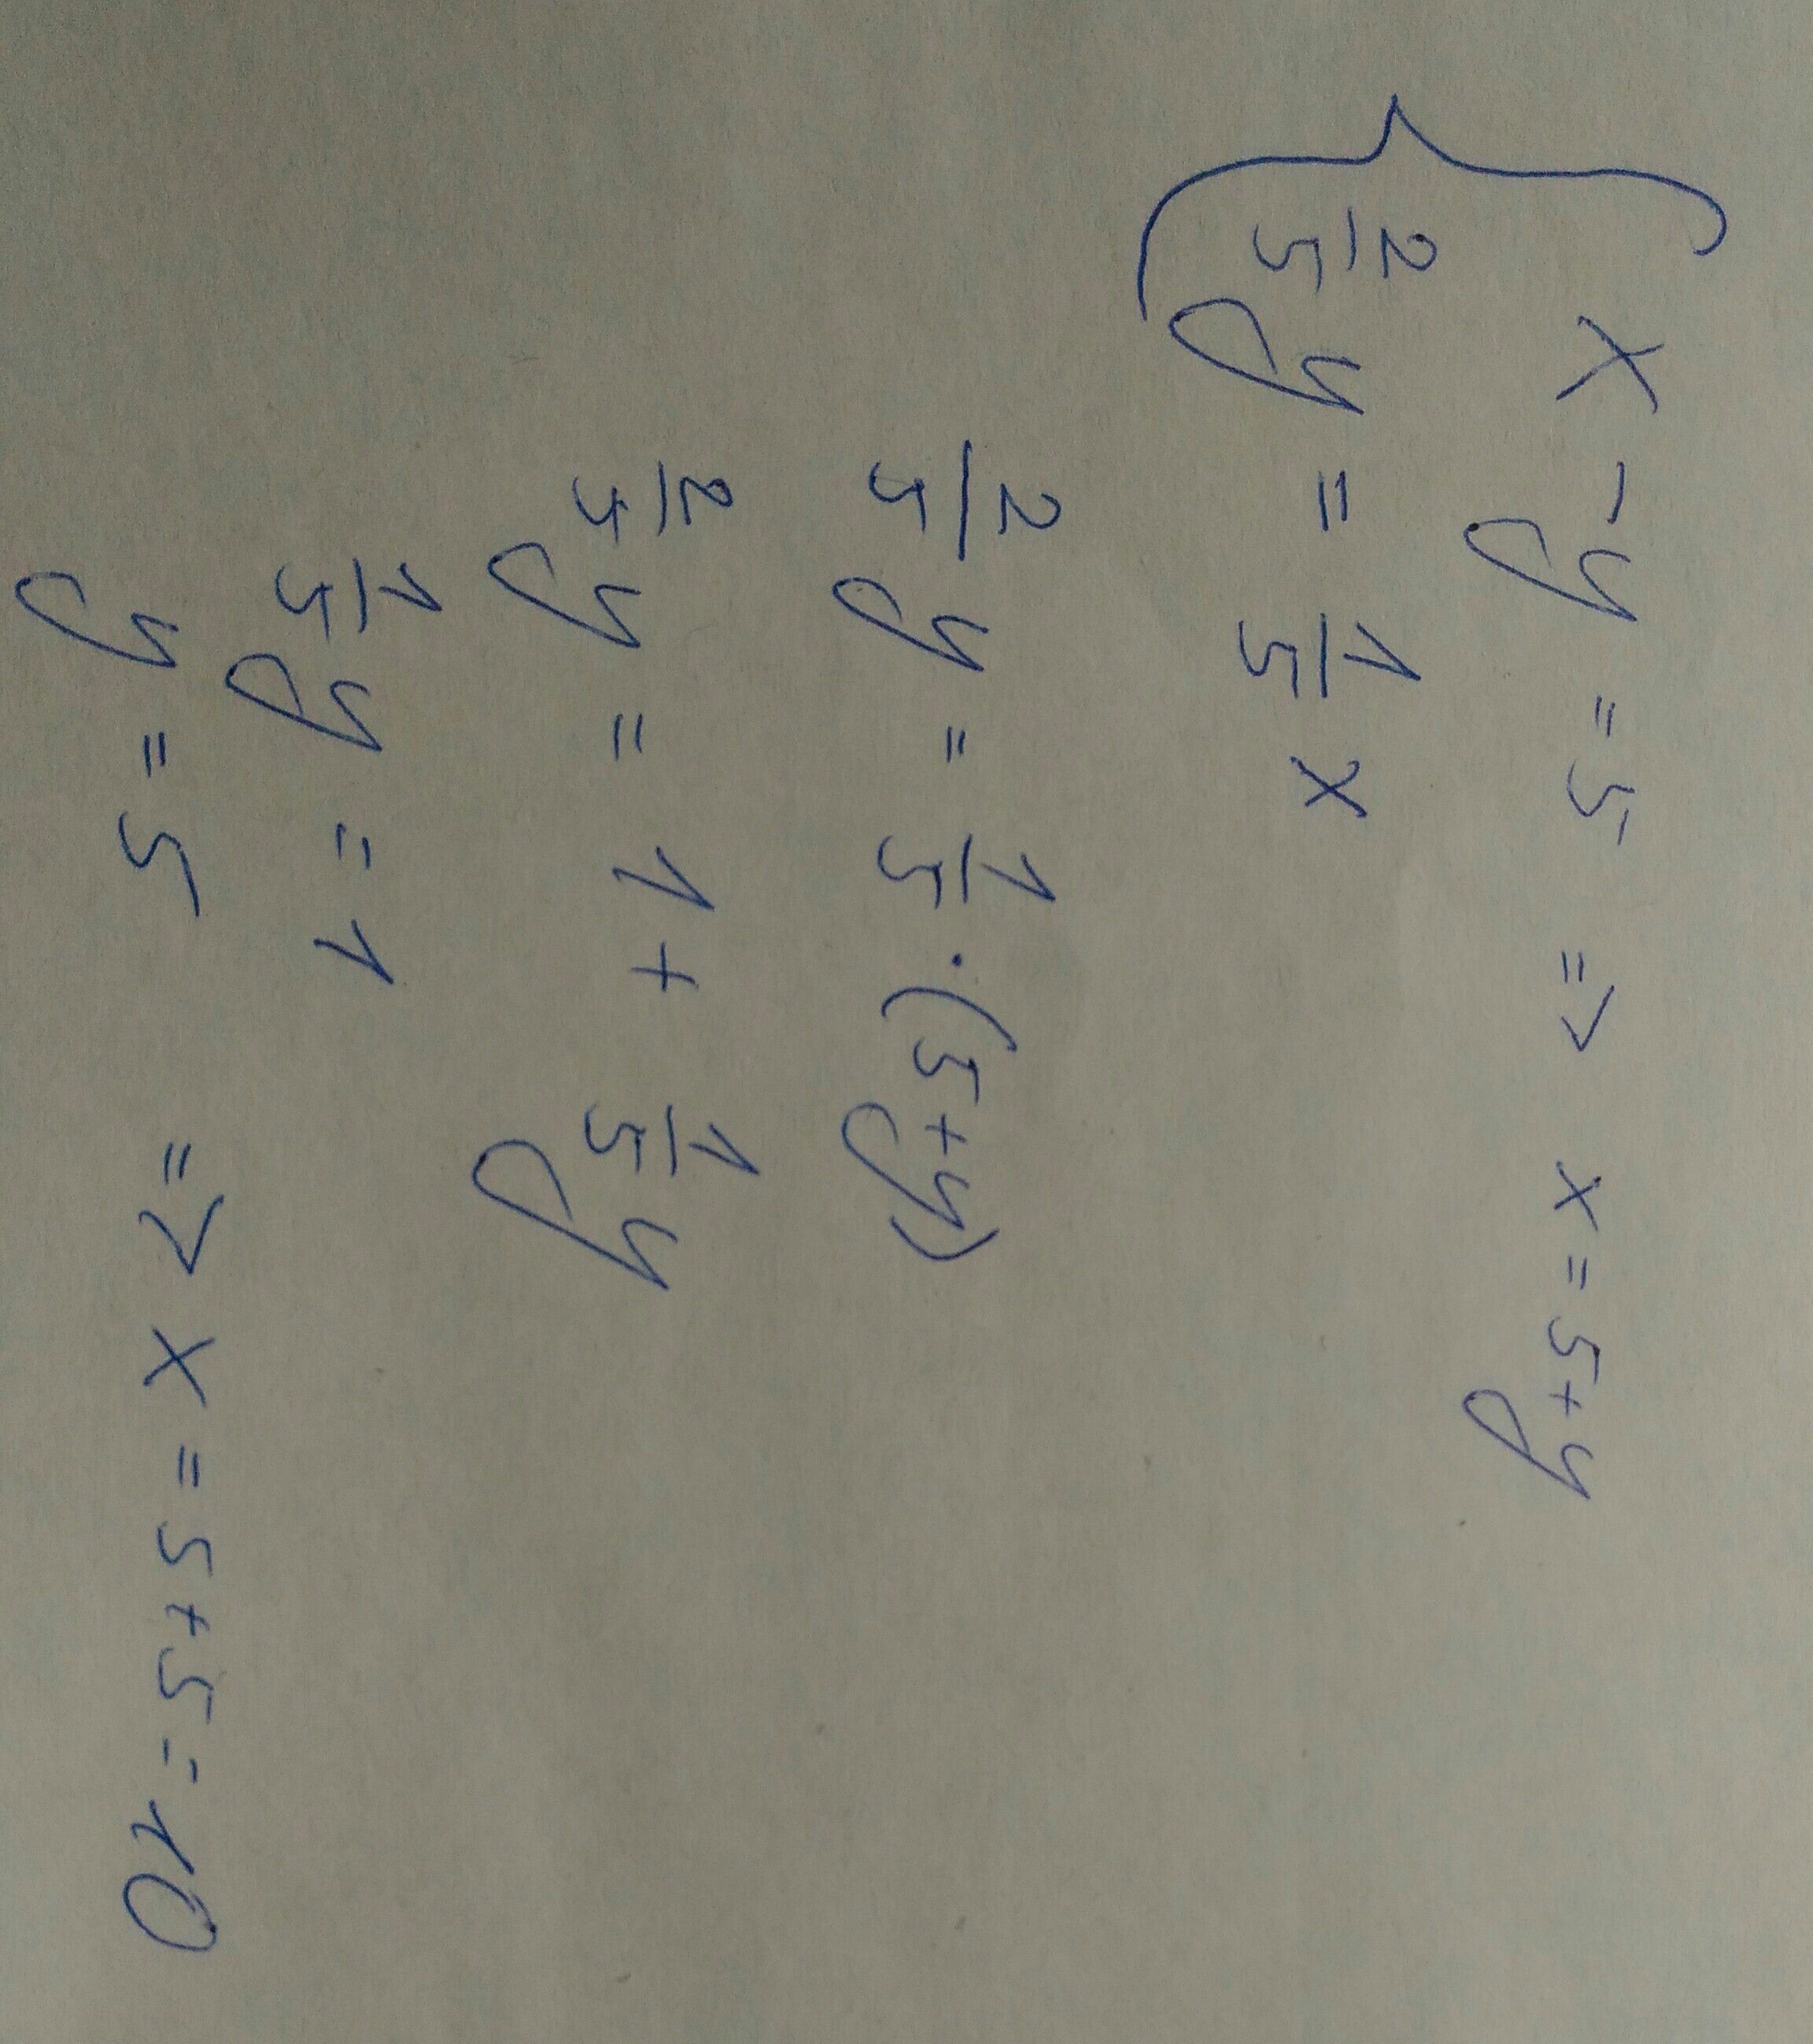 x - y = 5 => x = 5 + y
2/5 y = 1/5 x
2/5 y = 1/5 · (5 + y)
2/5 y = 1 + 1/5 y
1/5 y = 1
y = 5 => x = 5 + 5 = 10